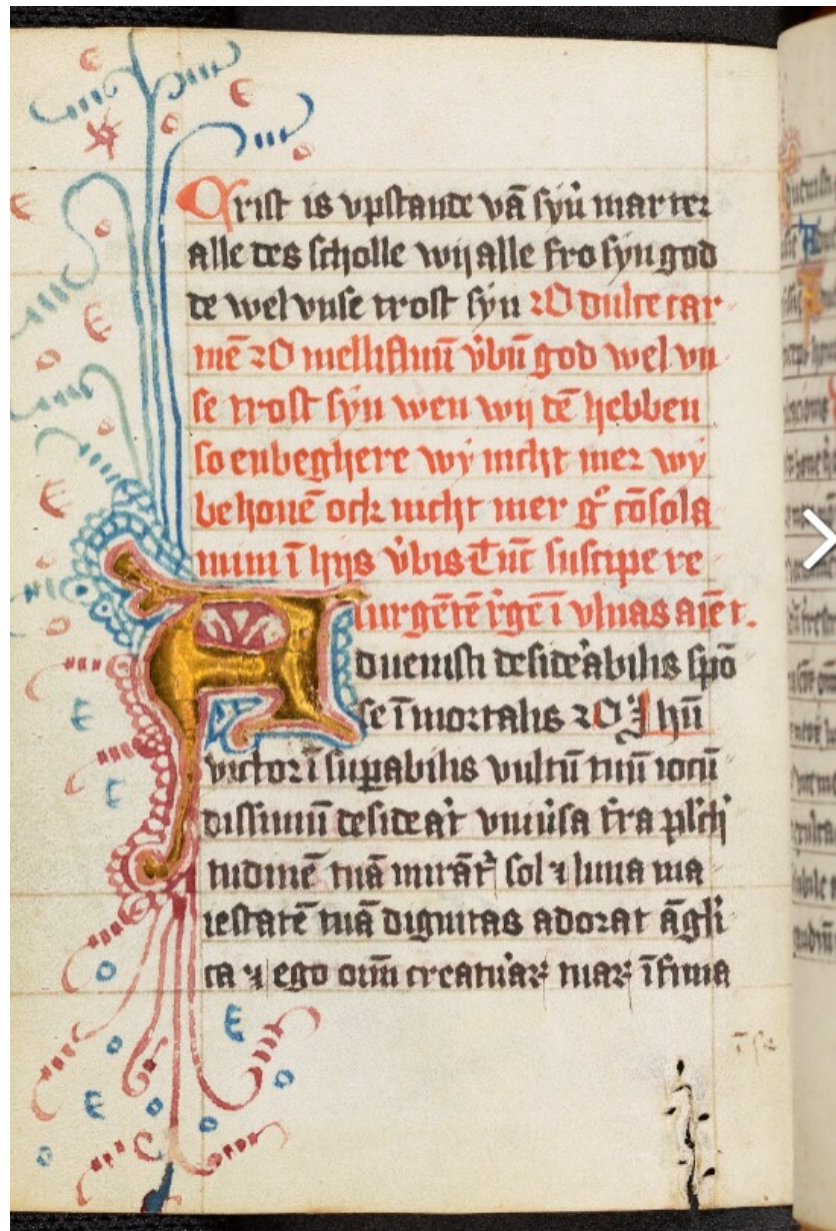 Crist is vpstande vā syn̄ marter
alle des scholle wij alle fro syn god
de wel vnse trost syn ꝛO dulce car
mē ꝛO mellifluū v̄bū god wel vn
se trost syn wen wij dē hebben
so enbeghere wy nicht mer wy
behouē ock nicht mer gͦ cōsola
mini ī hijs v̄bis Tūc suscipe re
surgētē rͤgē ī vlnas aīe t.
Aduenisti desideꝰabilis spō
se īmortalis ꝛO Jhū
victor īsuꝑabilis vultū tuū iocū
dissimū desideāt vniūsa t̄ra plc̄h
tudinē tuā mirāt᷑ sol ⁊ luna ma
iestatē tuā dignitas adorat āgli
ca ⁊ ego oīm creatuaꝝ tuaꝝ īfima